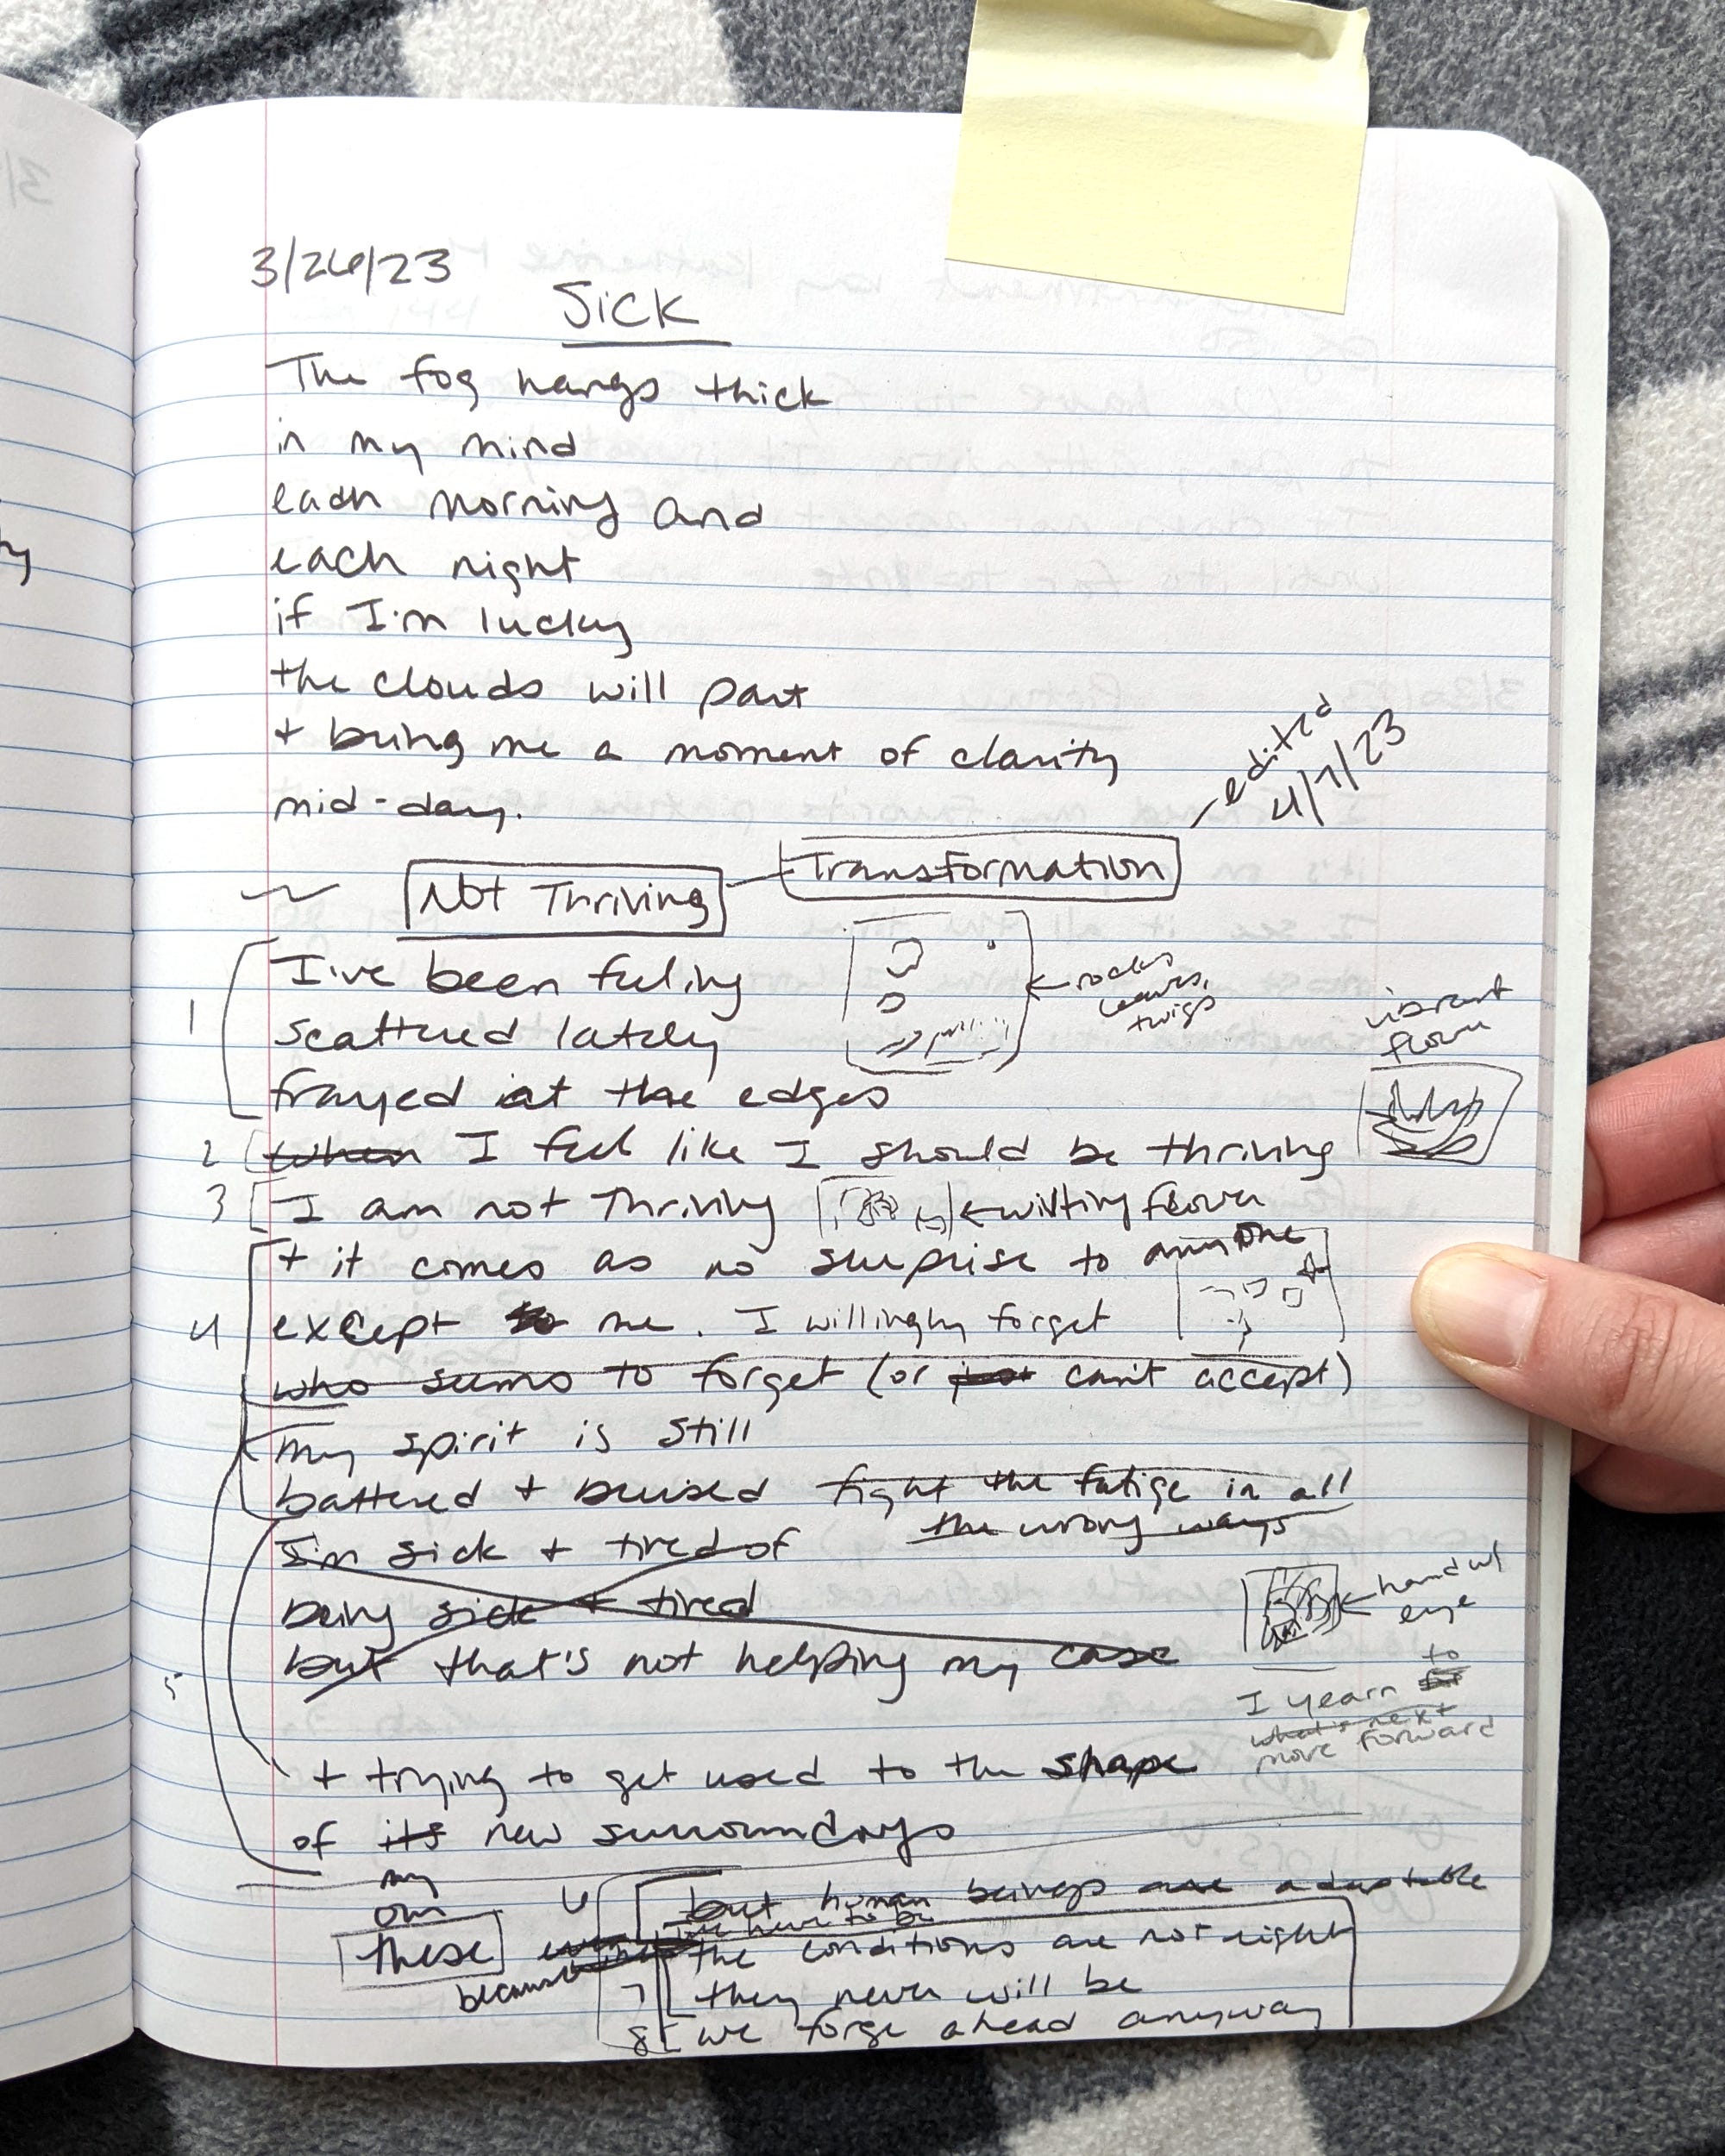 3/26/23
Sick
The fog hangs thick
in my mind
each morning and
each night
if I'm lucky
the clouds will part
+ bring me a moment of clarity
mid-day.
edited
4/7/23
Not Thriving
Transformation
1
I've been feeling
scattered lately
frayed at the edges
rocks,
leaves,
twigs
vibrant
flower
2 when I feel like I should be thriving
3 I am not thriving
wilting flower
4
+ it comes as no surprise to anyone
except to me. I willingly forget
who seems to forget (or just can't accept)
my spirit is still
battered + bruised fight the fatige in all
the wrong ways
5
I'm sick + tired of
being sick + tired
but that's not helping my case
hand w/
eye
I yearn to
what's next
move forward
+ trying to get used to the shape
of its new surroundings
my
our
these
because
6
but human beings are adaptable
we have to be
the conditions are not right
7 they never will be
8 we forge ahead anyway